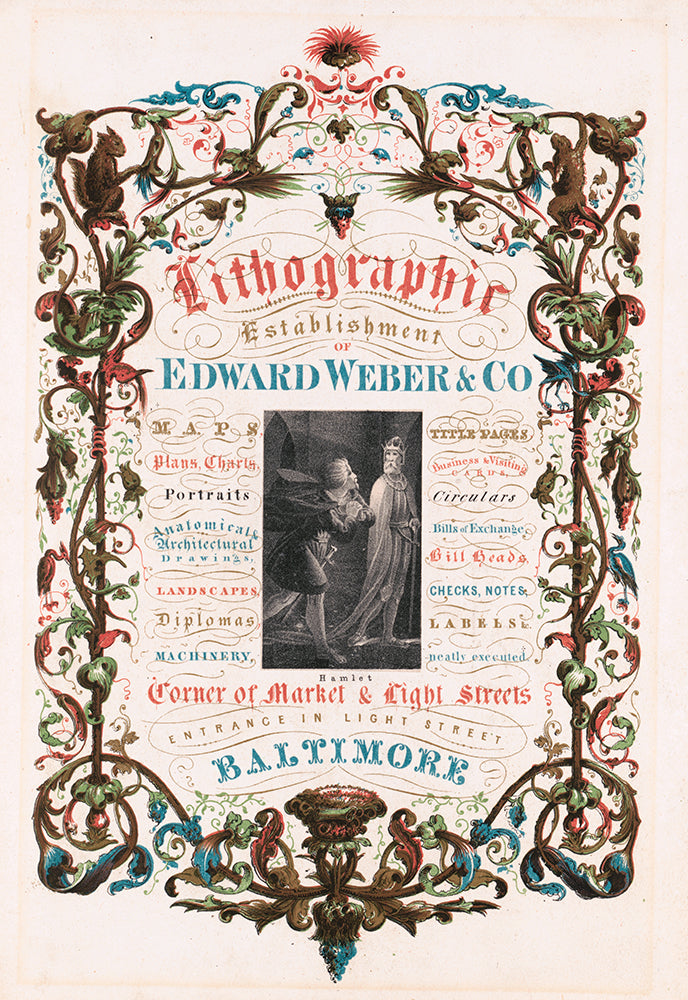 Lithographic
Establishment
OF
EDWARD WEBER & CO
MAPS
Plans, Charts,
Portraits
Anatomical &
Architectural
Drawings,
LANDSCAPES,
Diplomas
MACHINERY,
TITLE PAGES
Business & Visiting
CARDS,
Circulars
Bills of Exchange
Bill Heads,
CHECKS, NOTES,
LABELS &c.
neatly executed.
Hamlet
Corner of Market & Light Streets
ENTRANCE IN LIGHT STREET
BALTIMORE